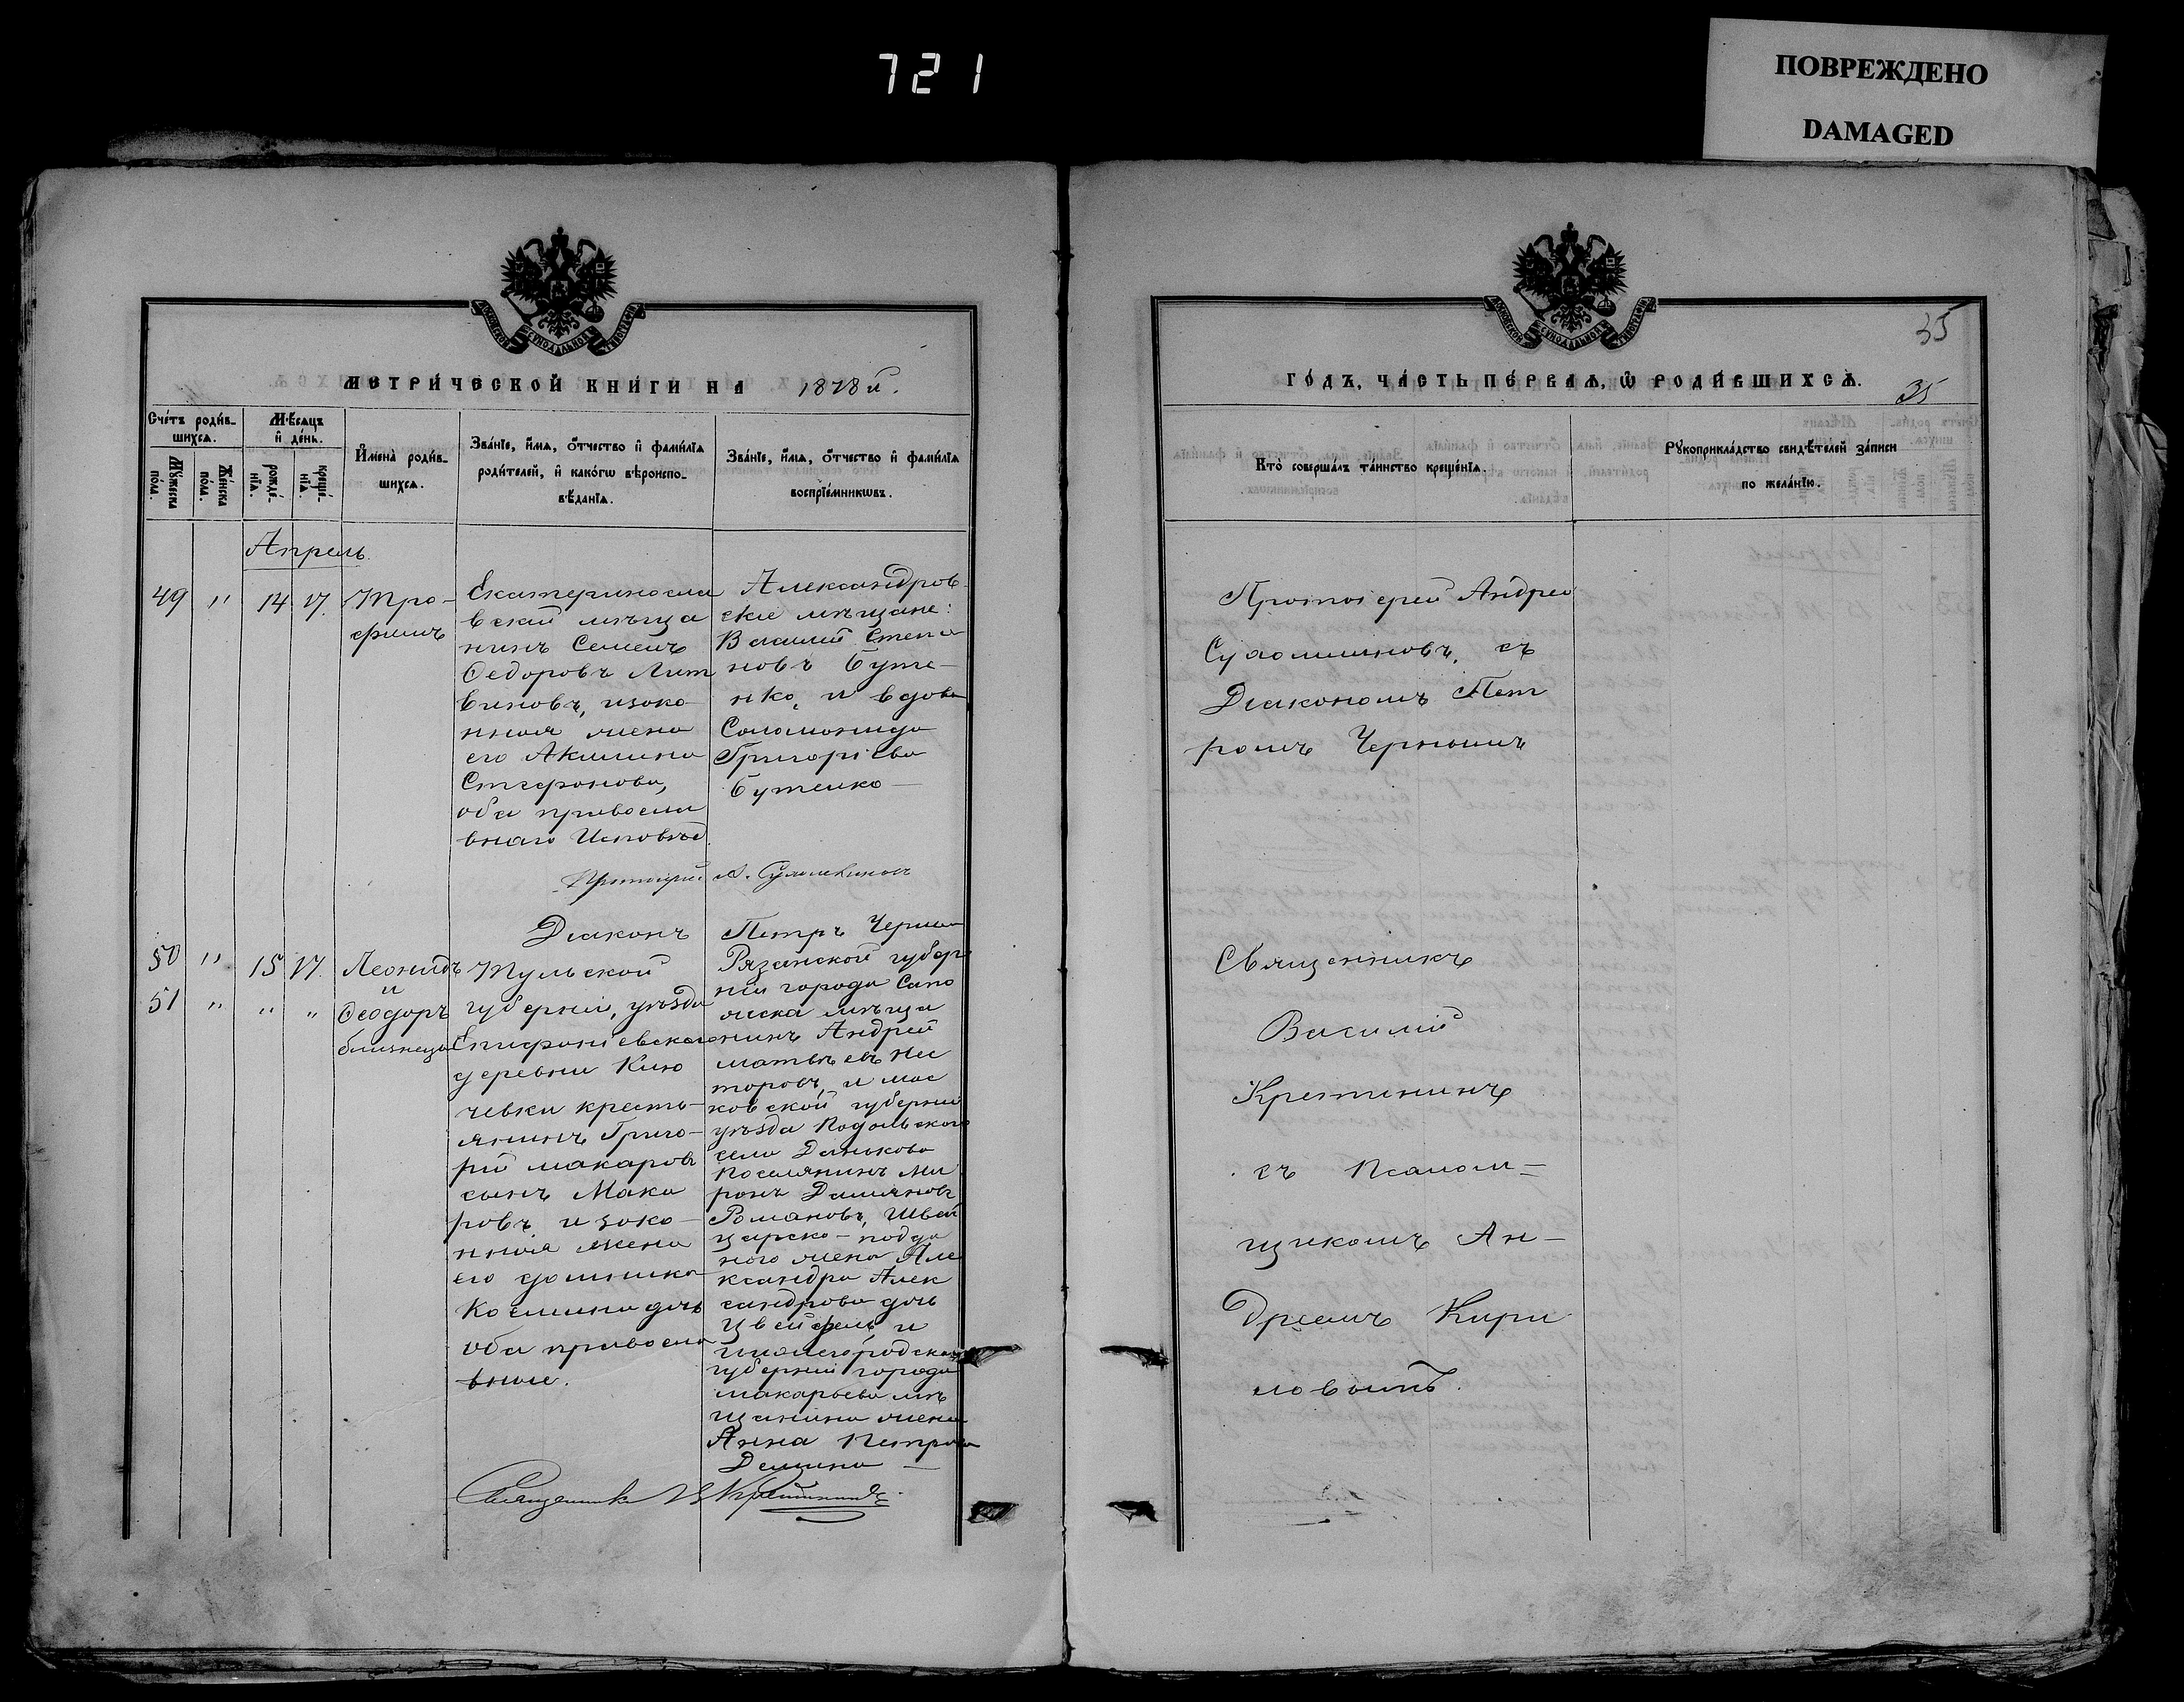 721
ПОВРЕЖДЕНО
DAMAGED
МЕТРИ́ЧЕСКОЙ КНИ́ГИ НА 1878й.
Сче́тъ роди́в-
шихсѧ.
Мꙋ́жеска
по́ла.
Же́нска
по́ла.
Мѣ́сѧцъ
и҆ де́нь.
рожде́-
нїѧ.
креще́-
нїѧ.
И҆мена̀ роди́в-
шихсѧ.
Зва́нїе, и҆́мѧ, ѻ҆́тчество и҆ фами́лїѧ
роди́телей, и҆ како́гѡ вѣроиспо-
вѣ́данїѧ.
Зва́нїе, и҆́мѧ, ѻ҆́тчество и҆ фами́лїѧ
воспрїе́мникѡвъ.
Апрель.
49 " 14 17. Тро-
фимъ
Екатериносла
вский мѣща
нинъ Семенъ
Ѳедоровъ Лит
виновъ, изако
нная жена
его Акилина
Стефанова,
оба правосла
внаго Исповѣд.
Александров
ские мѣщане:
Василий Степа
новъ Буте-
нко, и вдова
Соломонида
Григорiева
Бутенко —
Протоиерей А. Сухомлиновъ
Дiаконъ Петръ Черныш
50 " 15 17. Леонидъ
и
51 " " " Ѳеодоръ
близнецы
Тульской
губернiи, уѣзда
Епифанiевскаго
деревни Кию
чевки кресть-
янинъ Григо-
рiй макаровъ
сынъ Мака
ровъ и зако-
нная жена
его домника
Космина дочь
оба правосла
вные.
Рязанской губер
нiи города Сапо
жска мѣща
нинъ Андрей
матвѣевъ Нес
торовъ, и мос
ковской губернiи
уѣзда Подольскаго
села Данькова
поселянинъ Ми
ронъ Дамiановъ
Романовъ, Швей
царско-подда
ного жена Але
ксандра Алек
сандрова дочь
Цвейфель, и
нижегородской
губернiи города
макарьева мѣ
щанина жена
Анна Петрова
Демина —
Священникъ В. Крестининъ
35
ГО́ДЪ, ЧА́СТЬ ПЕ́РВАѦ, Ѡ҆ РОДИ́ВШИХСѦ.
35
Кто̀ соверша́лъ та́инство креще́нїѧ.
Рꙋкоприкла́дство свидѣ́телей за́писи
по жела́нїю.
Протоiерей Андрей
Сухомлиновъ, съ
Дiакономъ Пет
ромъ Чернышъ
Священникъ
Василий
Крестининъ
съ Псалом-
щикомъ Ан-
дреемъ Кири
ловымъ.